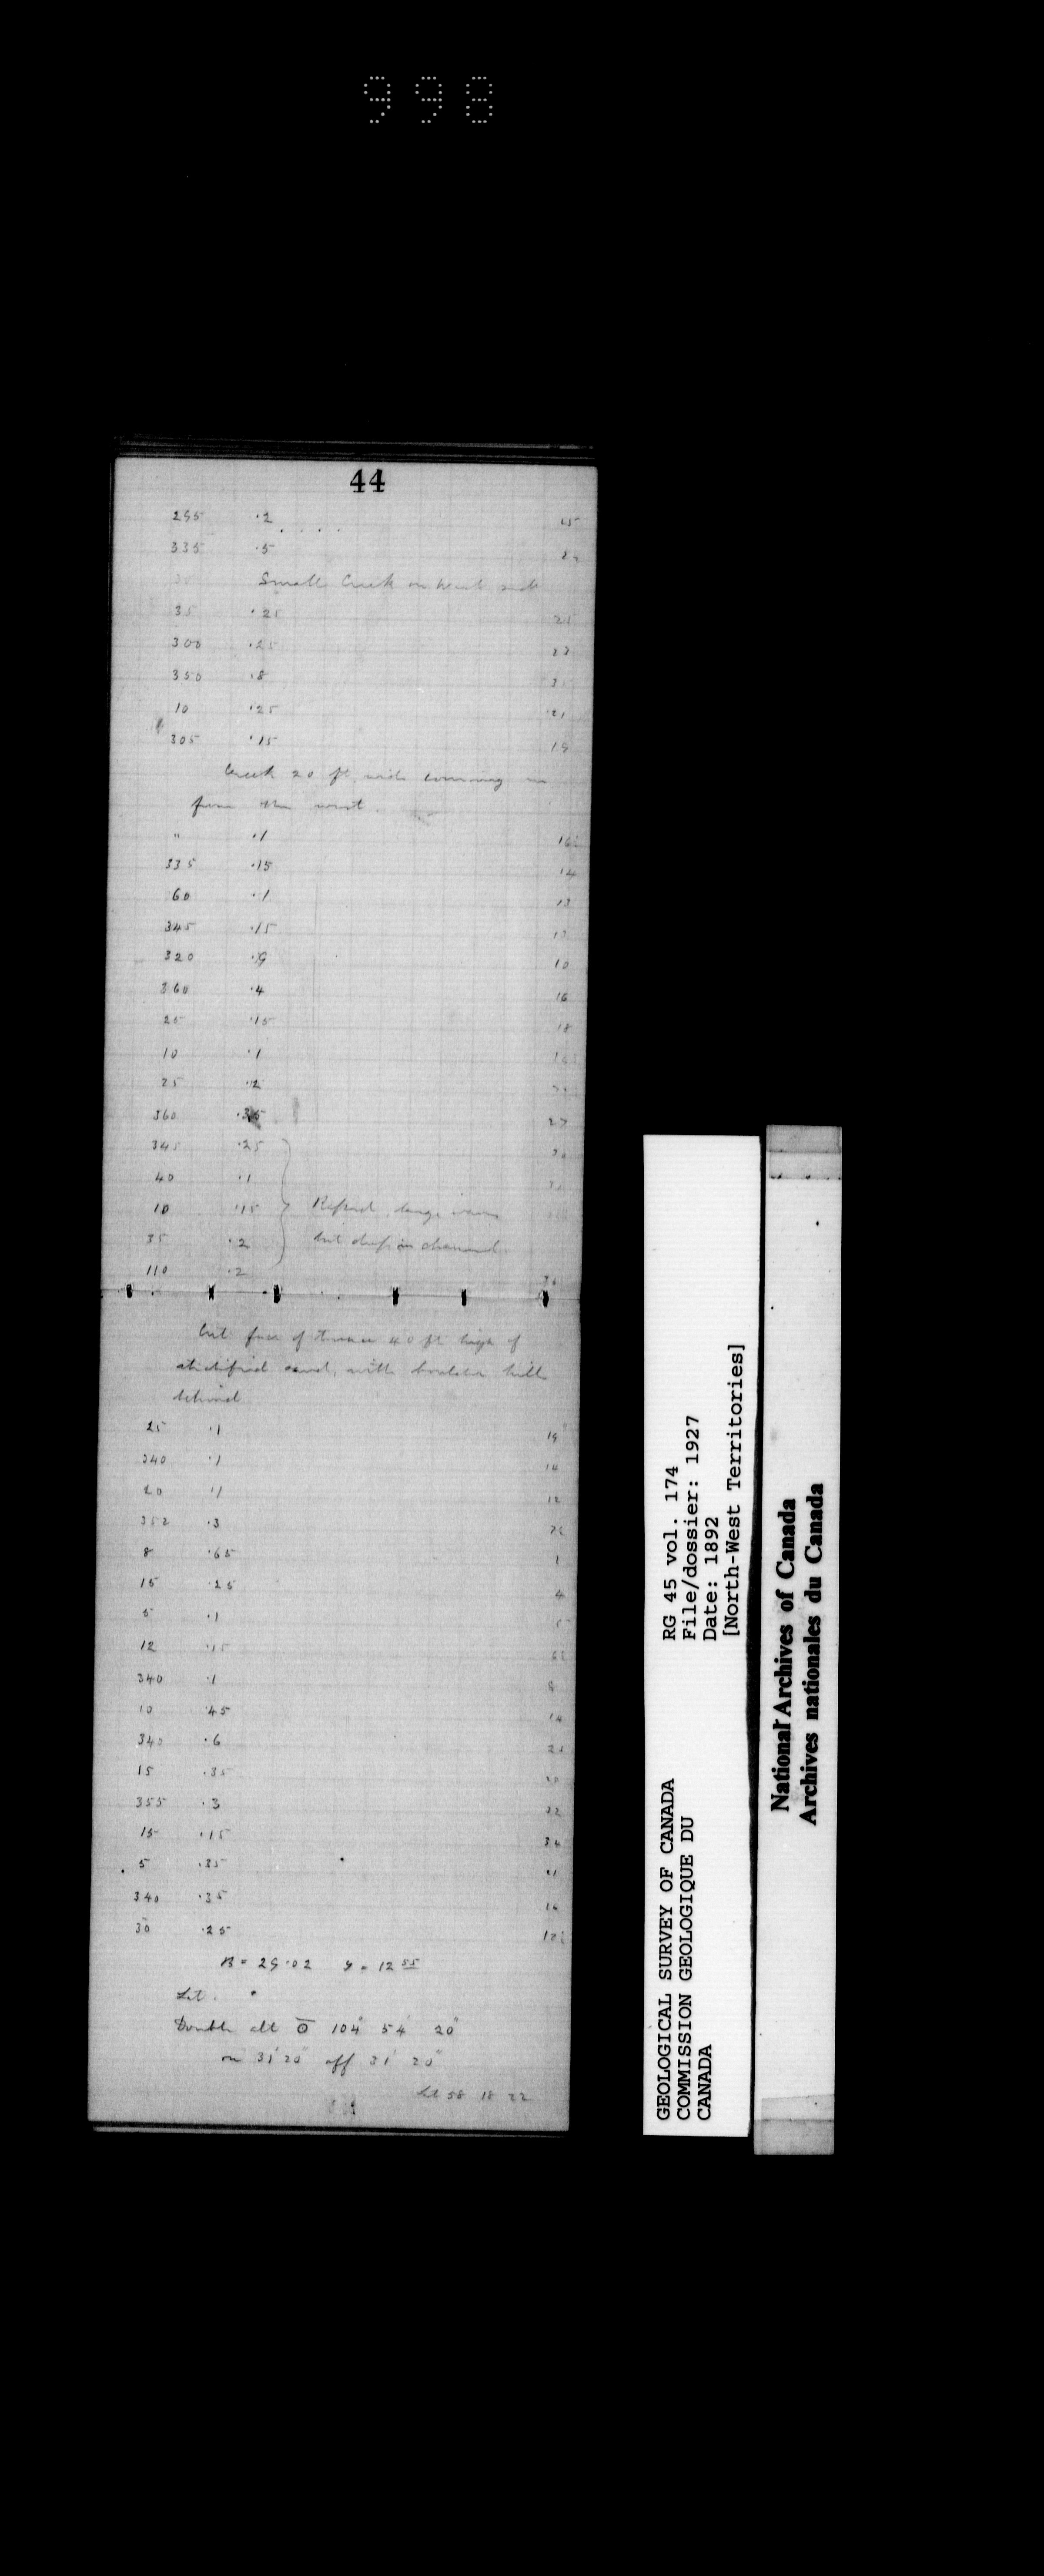 998
44
295 .2
335 .5
Small Creek on west side
35 .25 25
300 .25 23
350 .8
10 .25 21
305 .15 19
Creek 20 ft wide coming in
from the west.
" .1 16½
335 .15 14
60 .1 13
345 .15 12
320 .9 10
360 .4 16
25 .15 18
10 .1
25 .2
360 .35 27
345 .25 30
40 .1
10 .15
35 .2 but deep in channel
110 .2
Cut face of terrace 40 ft high of
stratified sand, with boulder hill
behind
25 .1 19
340 .1 14
20 .1 12
352 .3
8 .65 1
15 .25 4
5 .1 5
12 .15
340 .1 8
10 .45 14
340 .6
15 .35
355 .3 32
15 .15 34
5 .35 21
340 .35 16
30 .25
B = 29.02 = 12 55
Lat.
Double alt 104° 54' 20"
on 31' 20" off 31' 20"
Lat 58 18 22
GEOLOGICAL SURVEY OF CANADA
COMMISSION GEOLOGIQUE DU
CANADA
RG 45 vol. 174
File/dossier: 1927
Date: 1892
[North-West Territories]
National Archives of Canada
Archives nationales du Canada